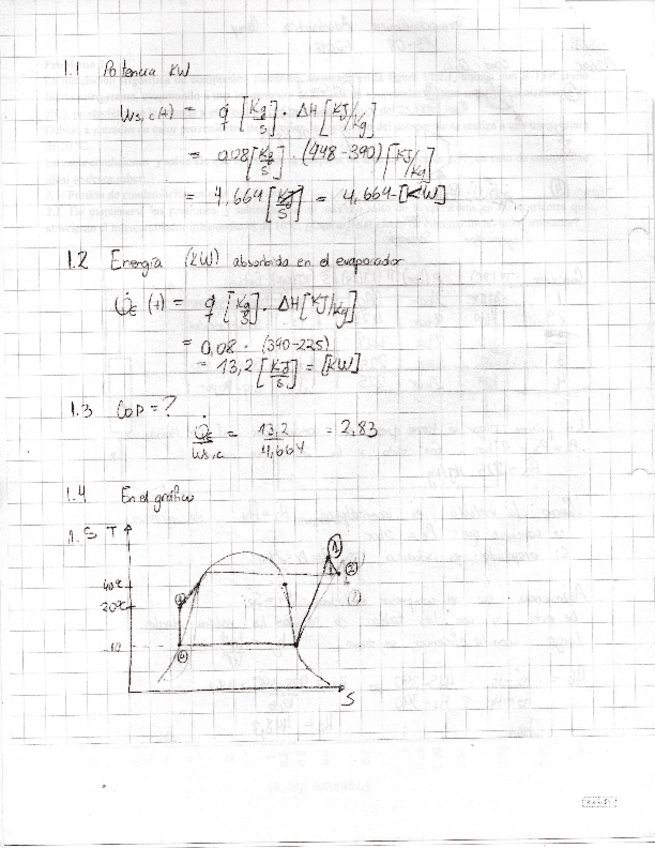 1.1 Potencia KW
Ws,c(+) = q̇ [Kg/s] · ΔH [KJ/Kg]
= 0,08 [Kg/s] · (448-390) [KJ/Kg]
= 4,664 [KJ/s] = 4,664 [KW]
1.2 Energía (KW) absorbida en el evaporador
Q̇E (+) = q̇ [Kg/s] · ΔH [KJ/Kg]
= 0,08 · (390-225)
= 13,2 [KJ/s] = [KW]
1.3 COP = ?
Q̇E/Ws,c = 13,2/4,664 = 2,83
1.4 En el gráfico
1.5 T
①
②
60°C
20°C
-10
S